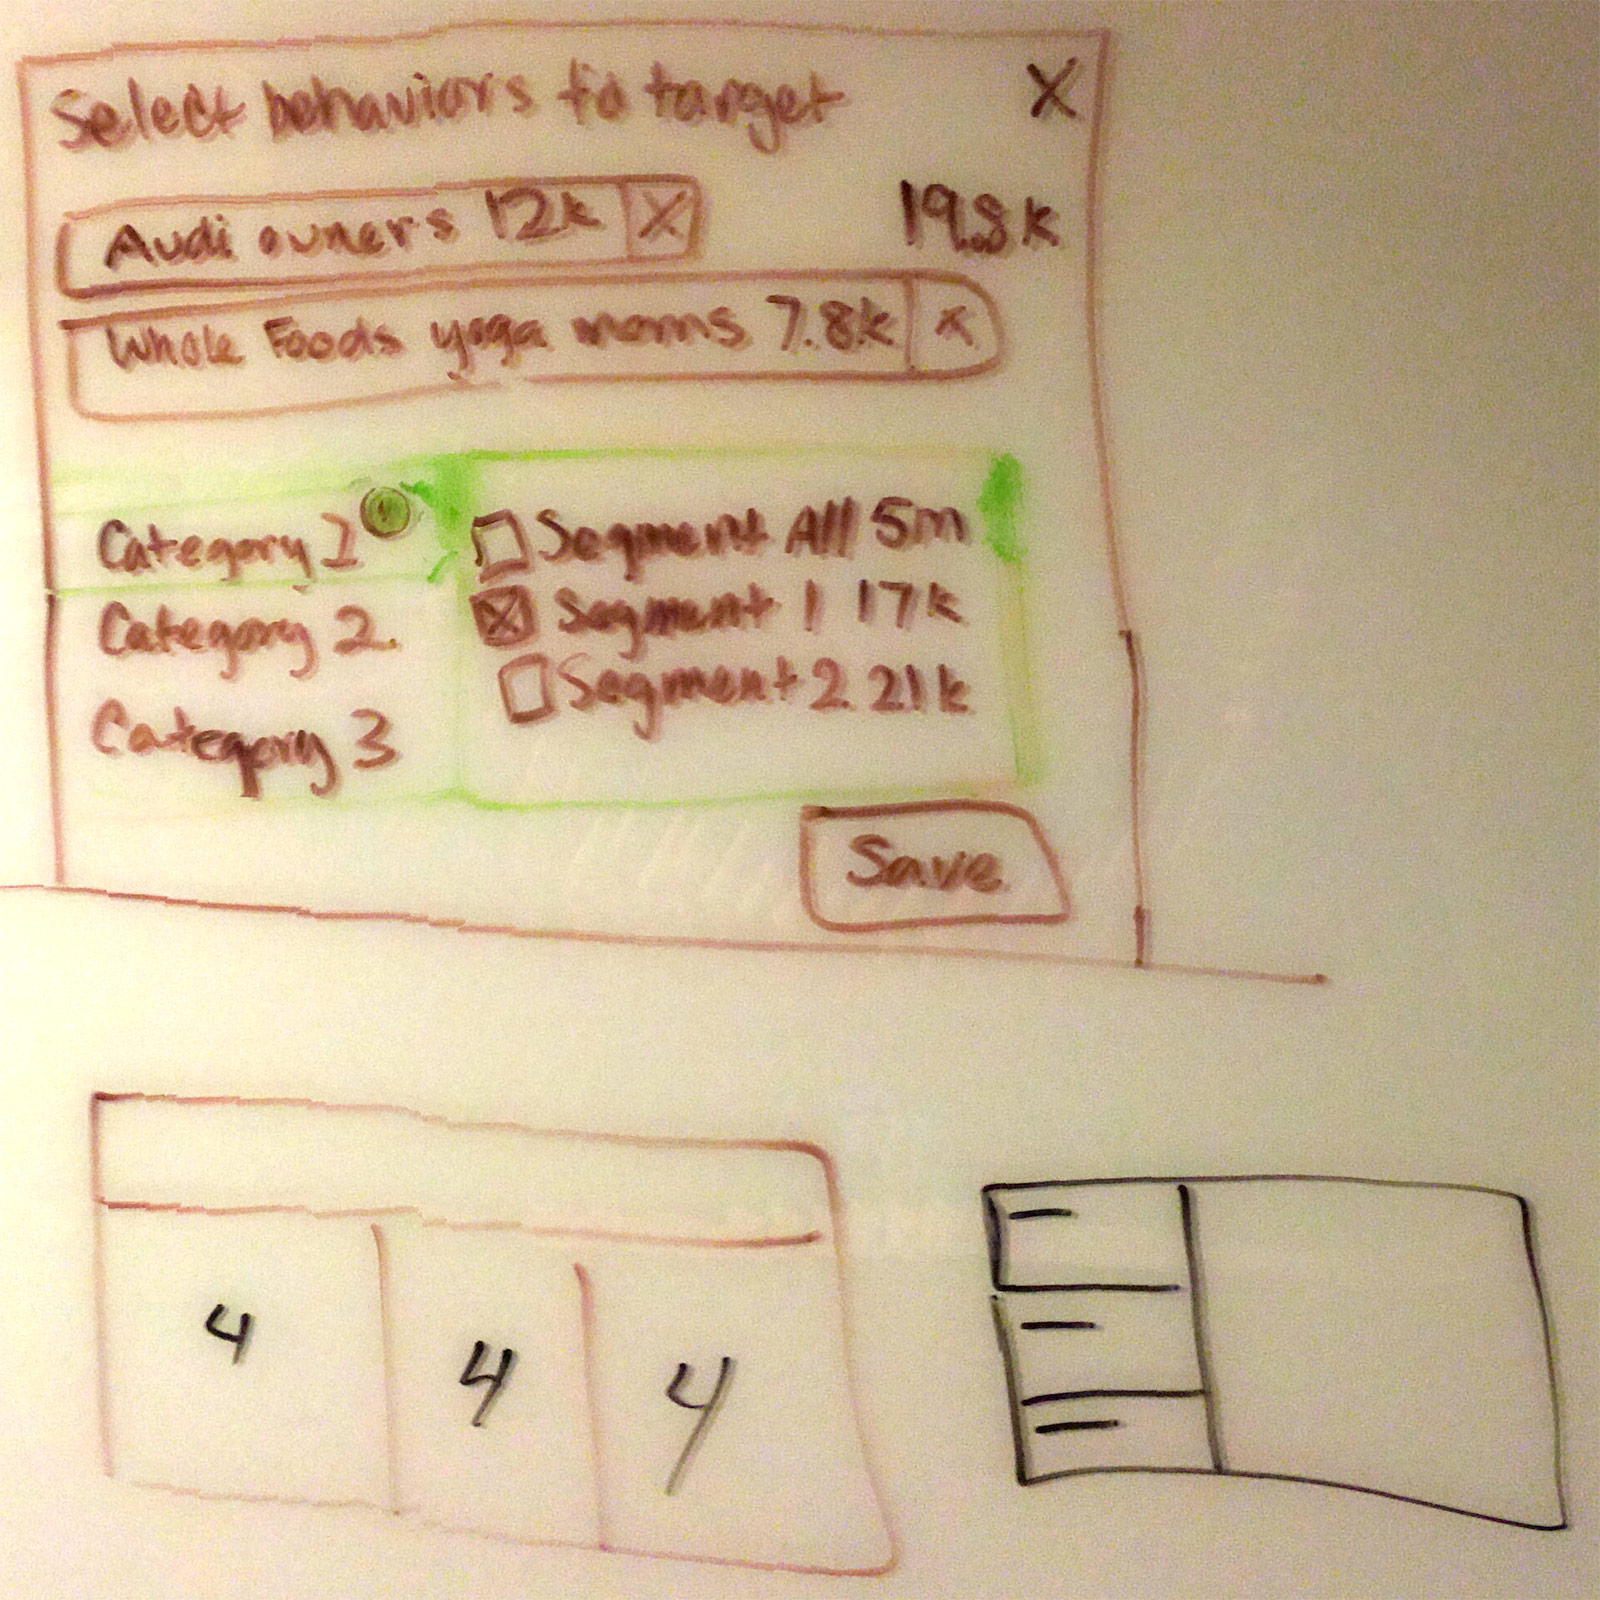 Select behaviors to target X
Audi owners 12k X
19.8k
Whole Foods yoga moms 7.8k x
Category 1
Category 2
Category 3
Segment All 5m
X Segment 1 17k
Segment 2 21k
Save
4 4 4